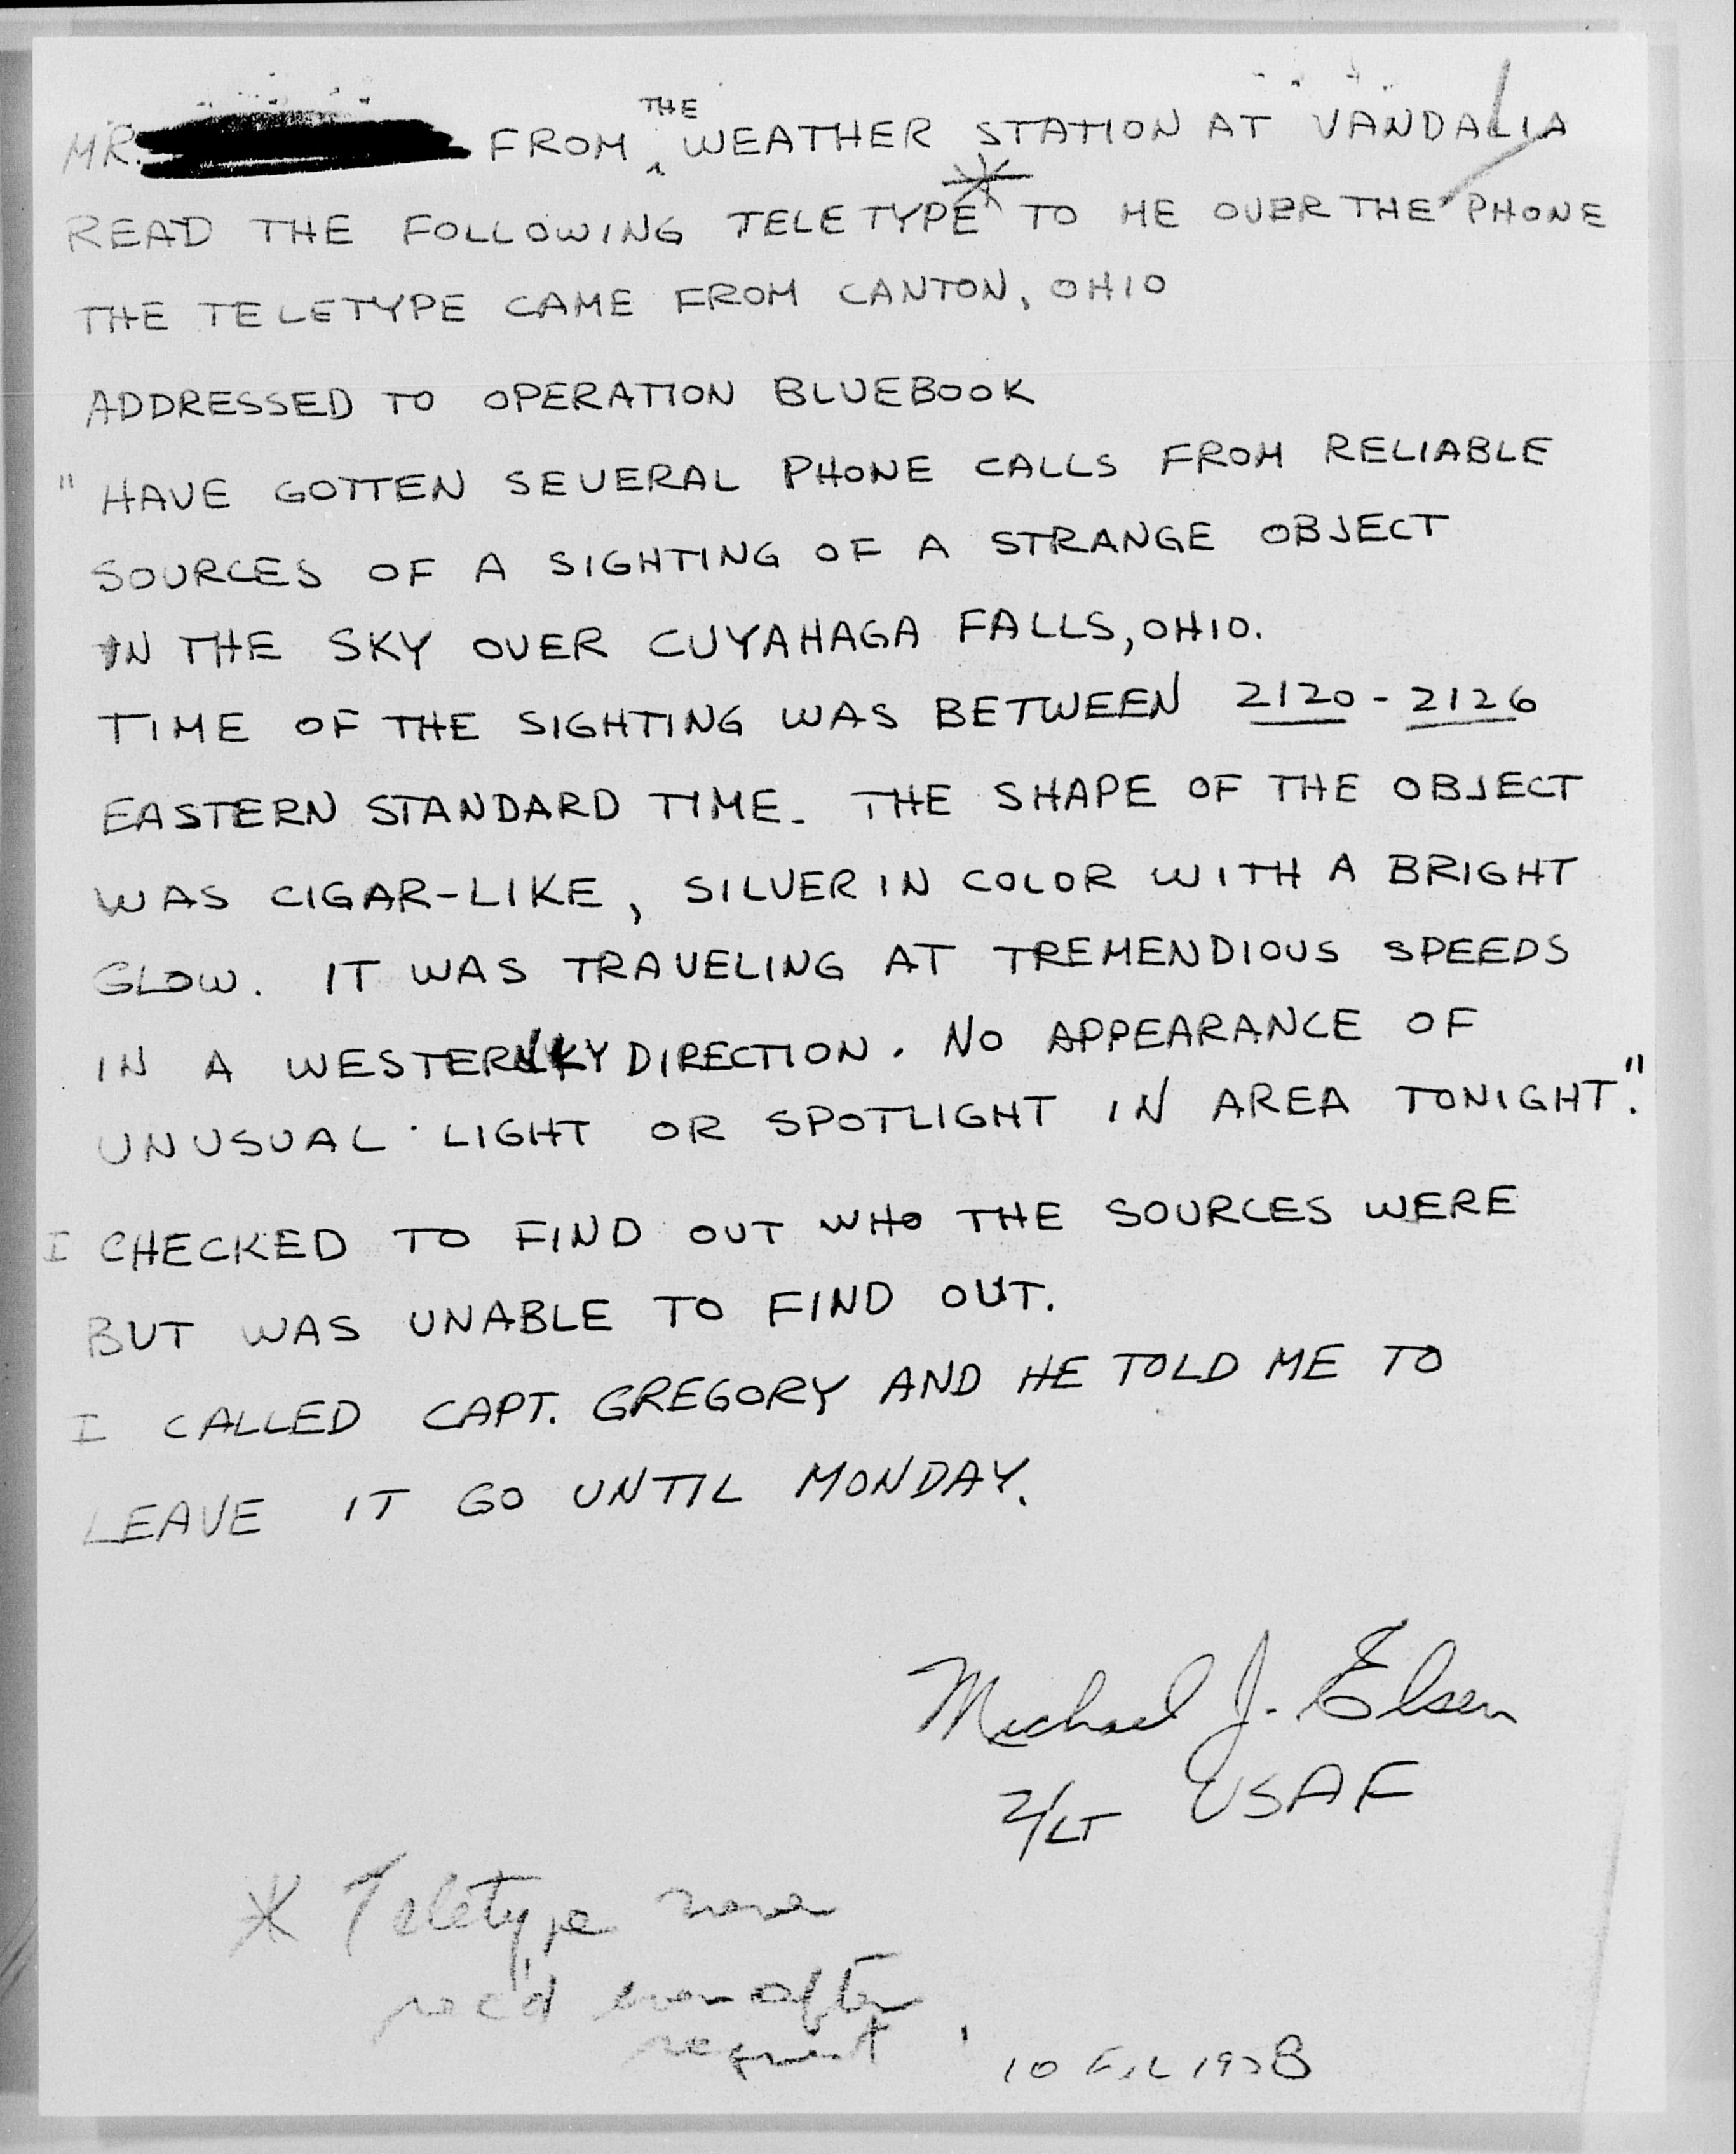 MR. FROM THE WEATHER STATION AT VANDALIA
READ THE FOLLOWING TELETYPE* TO ME OVER THE PHONE
THE TELETYPE CAME FROM CANTON, OHIO
ADDRESSED TO OPERATION BLUEBOOK
"HAVE GOTTEN SEVERAL PHONE CALLS FROM RELIABLE
SOURCES OF A SIGHTING OF A STRANGE OBJECT
IN THE SKY OVER CUYAHAGA FALLS, OHIO.
TIME OF THE SIGHTING WAS BETWEEN 2120 - 2126
EASTERN STANDARD TIME. THE SHAPE OF THE OBJECT
WAS CIGAR-LIKE, SILVER IN COLOR WITH A BRIGHT
GLOW. IT WAS TRAVELING AT TREMENDIOUS SPEEDS
IN A DIRECTION. NO APPEARANCE OF
UNUSUAL LIGHT OR SPOTLIGHT IN AREA TONIGHT."
I CHECKED TO FIND OUT WHO THE SOURCES WERE
BUT WAS UNABLE TO FIND OUT.
I CALLED CAPT. GREGORY AND HE TOLD ME TO
LEAVE IT GO UNTIL MONDAY.
Michael J. Elsen
2/LT USAF
* Teletype never
rec'd even after
request
10 1958